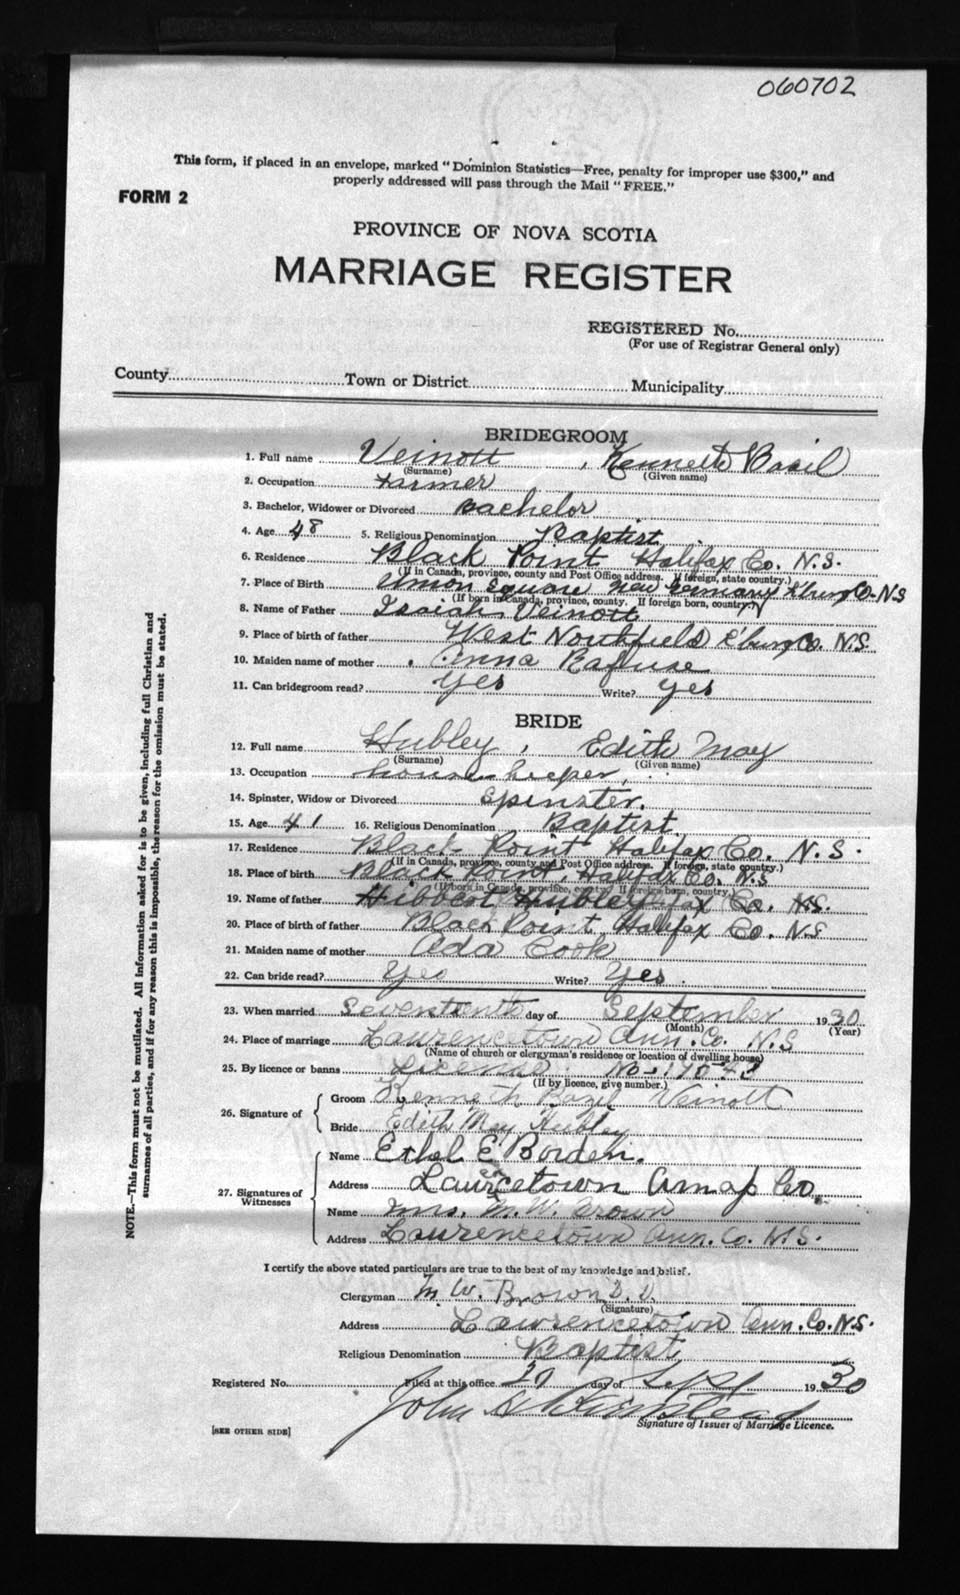 060702
This form, if placed in an envelope, marked "Dominion Statistics—Free, penalty for improper use $300," and
properly addressed will pass through the Mail "FREE."
FORM 2
PROVINCE OF NOVA SCOTIA
MARRIAGE REGISTER
REGISTERED No.
(For use of Registrar General only)
County Town or District Municipality
BRIDEGROOM
1. Full name Veinott, Kenneth Basil
(Surname) (Given name)
2. Occupation Farmer
3. Bachelor, Widower or Divorced Bachelor
4. Age 48 5. Religious Denomination Baptist
6. Residence Black Point Halifax Co. N.S.
(If in Canada, province, county and Post Office address. If foreign, state country.)
7. Place of Birth Union Square New Germany Co. NS
(If born in Canada, province, county. If foreign born, country.)
8. Name of Father Isaiah Veinott
9. Place of birth of father West Northfield Co. N.S.
10. Maiden name of mother Anna Rafuse
11. Can bridegroom read? yes Write? yes
BRIDE
12. Full name Hubley, Edith May
(Surname) (Given name)
13. Occupation housekeeper,
14. Spinster, Widow or Divorced Spinster.
15. Age 41 16. Religious Denomination Baptist
17. Residence Black Point Halifax Co. N.S.
(If in Canada, province, county and Post Office address. If foreign, state country.)
18. Place of birth Black Point, Halifax Co. N.S
(If born in Canada, province, county. If foreign born, country.)
19. Name of father Hibbert Hubley Co. N.S.
20. Place of birth of father Black Point Halifax Co. N.S
21. Maiden name of mother Ada Cook
22. Can bride read? Yes Write? Yes.
23. When married Seventeenth day of September 1930
(Month) (Year)
24. Place of marriage Laurencetown Ann. Co. N.S
(Name of church or clergyman's residence or location of dwelling house)
25. By licence or banns Licence No.
(If by licence, give number.)
26. Signature of
Groom Kenneth Bazil Veinott
Bride Edith May Hubley
27. Signatures of Witnesses
Name Ethel E. Borden.
Address Laurencetown Annap Co.
Name Mrs. M. W. Brown
Address Lawrencetown Ann. Co. N.S.
I certify the above stated particulars are true to the best of my knowledge and belief.
Clergyman M. W. Brown
(Signature)
Address Lawrencetown Ann. Co. N.S.
Religious Denomination Baptist
Registered No. Filed at this office day of Sept 1930
John
Signature of Issuer of Marriage Licence.
[SEE OTHER SIDE]
NOTE.—This form must not be mutilated. All information asked for is to be given, including full Christian and
surnames of all parties, and if for any reason this is impossible, the reason for the omission must be stated.